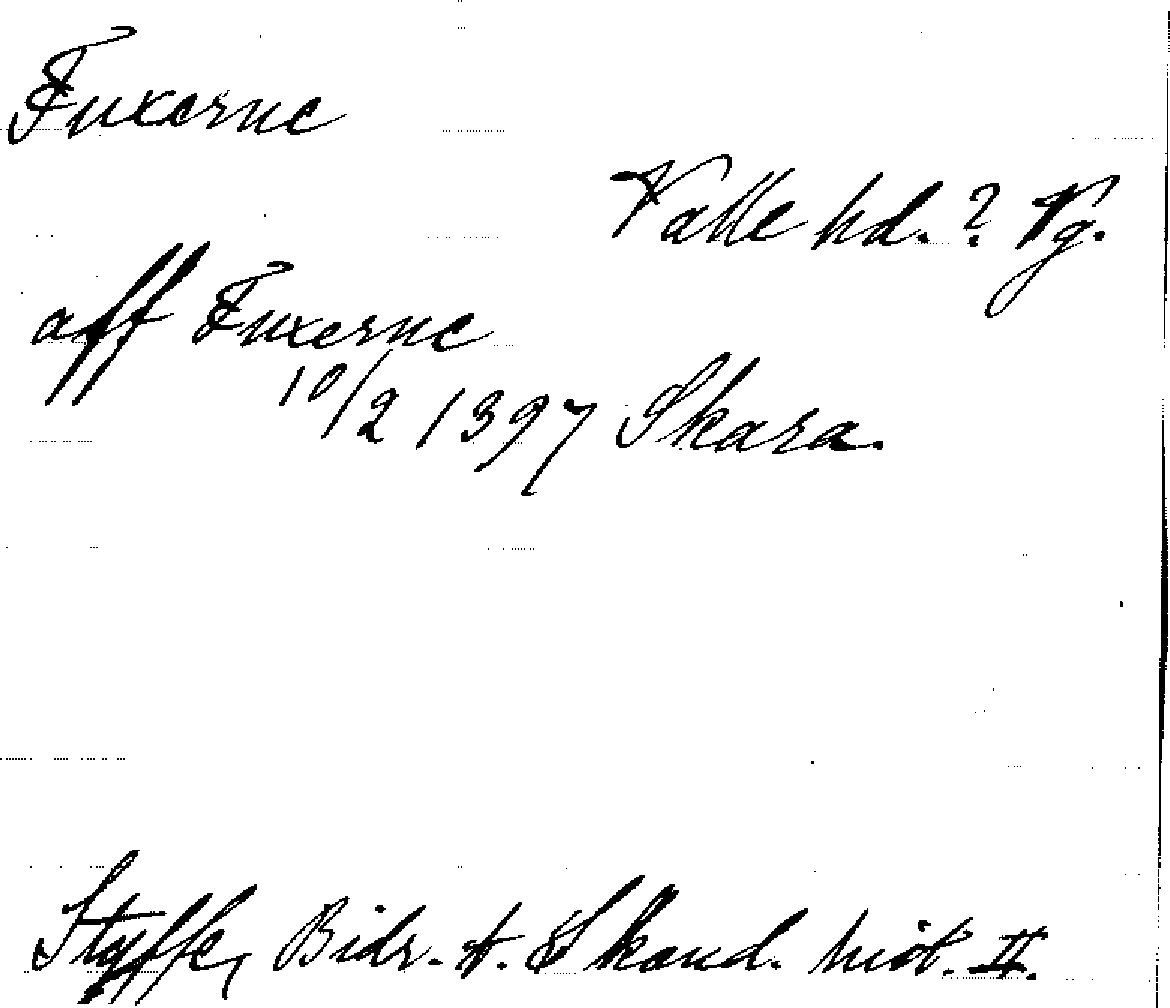 Fuxerne
Valle hd. ? Vg.
aff Fuxerne
10/2 1397 Skara.
Styffe, Bidr. t. Skand. hist. II.